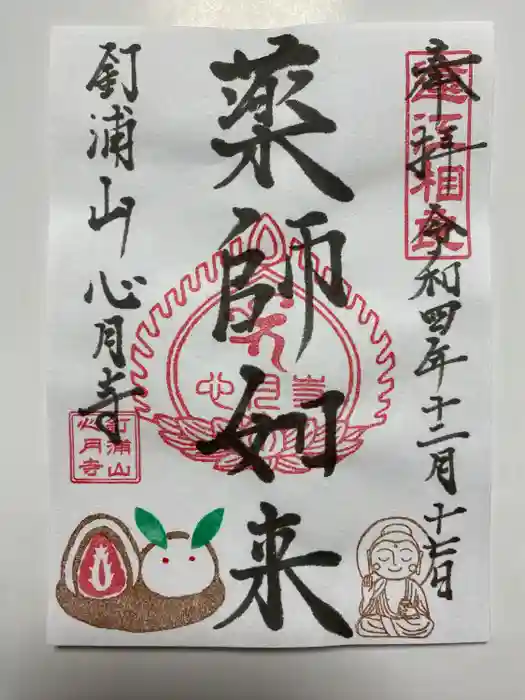 奉拝
令和四年十二月十七日
薬師如来
心月寺
釘浦山
心月寺
釘浦山
心月寺